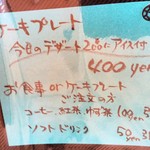 ケーキプレート
今日のデザート2色にアイス付
400 yen
お食事 or ケーキプレート
ご注文の方
コーヒー、紅茶
ソフトドリンク 50yen